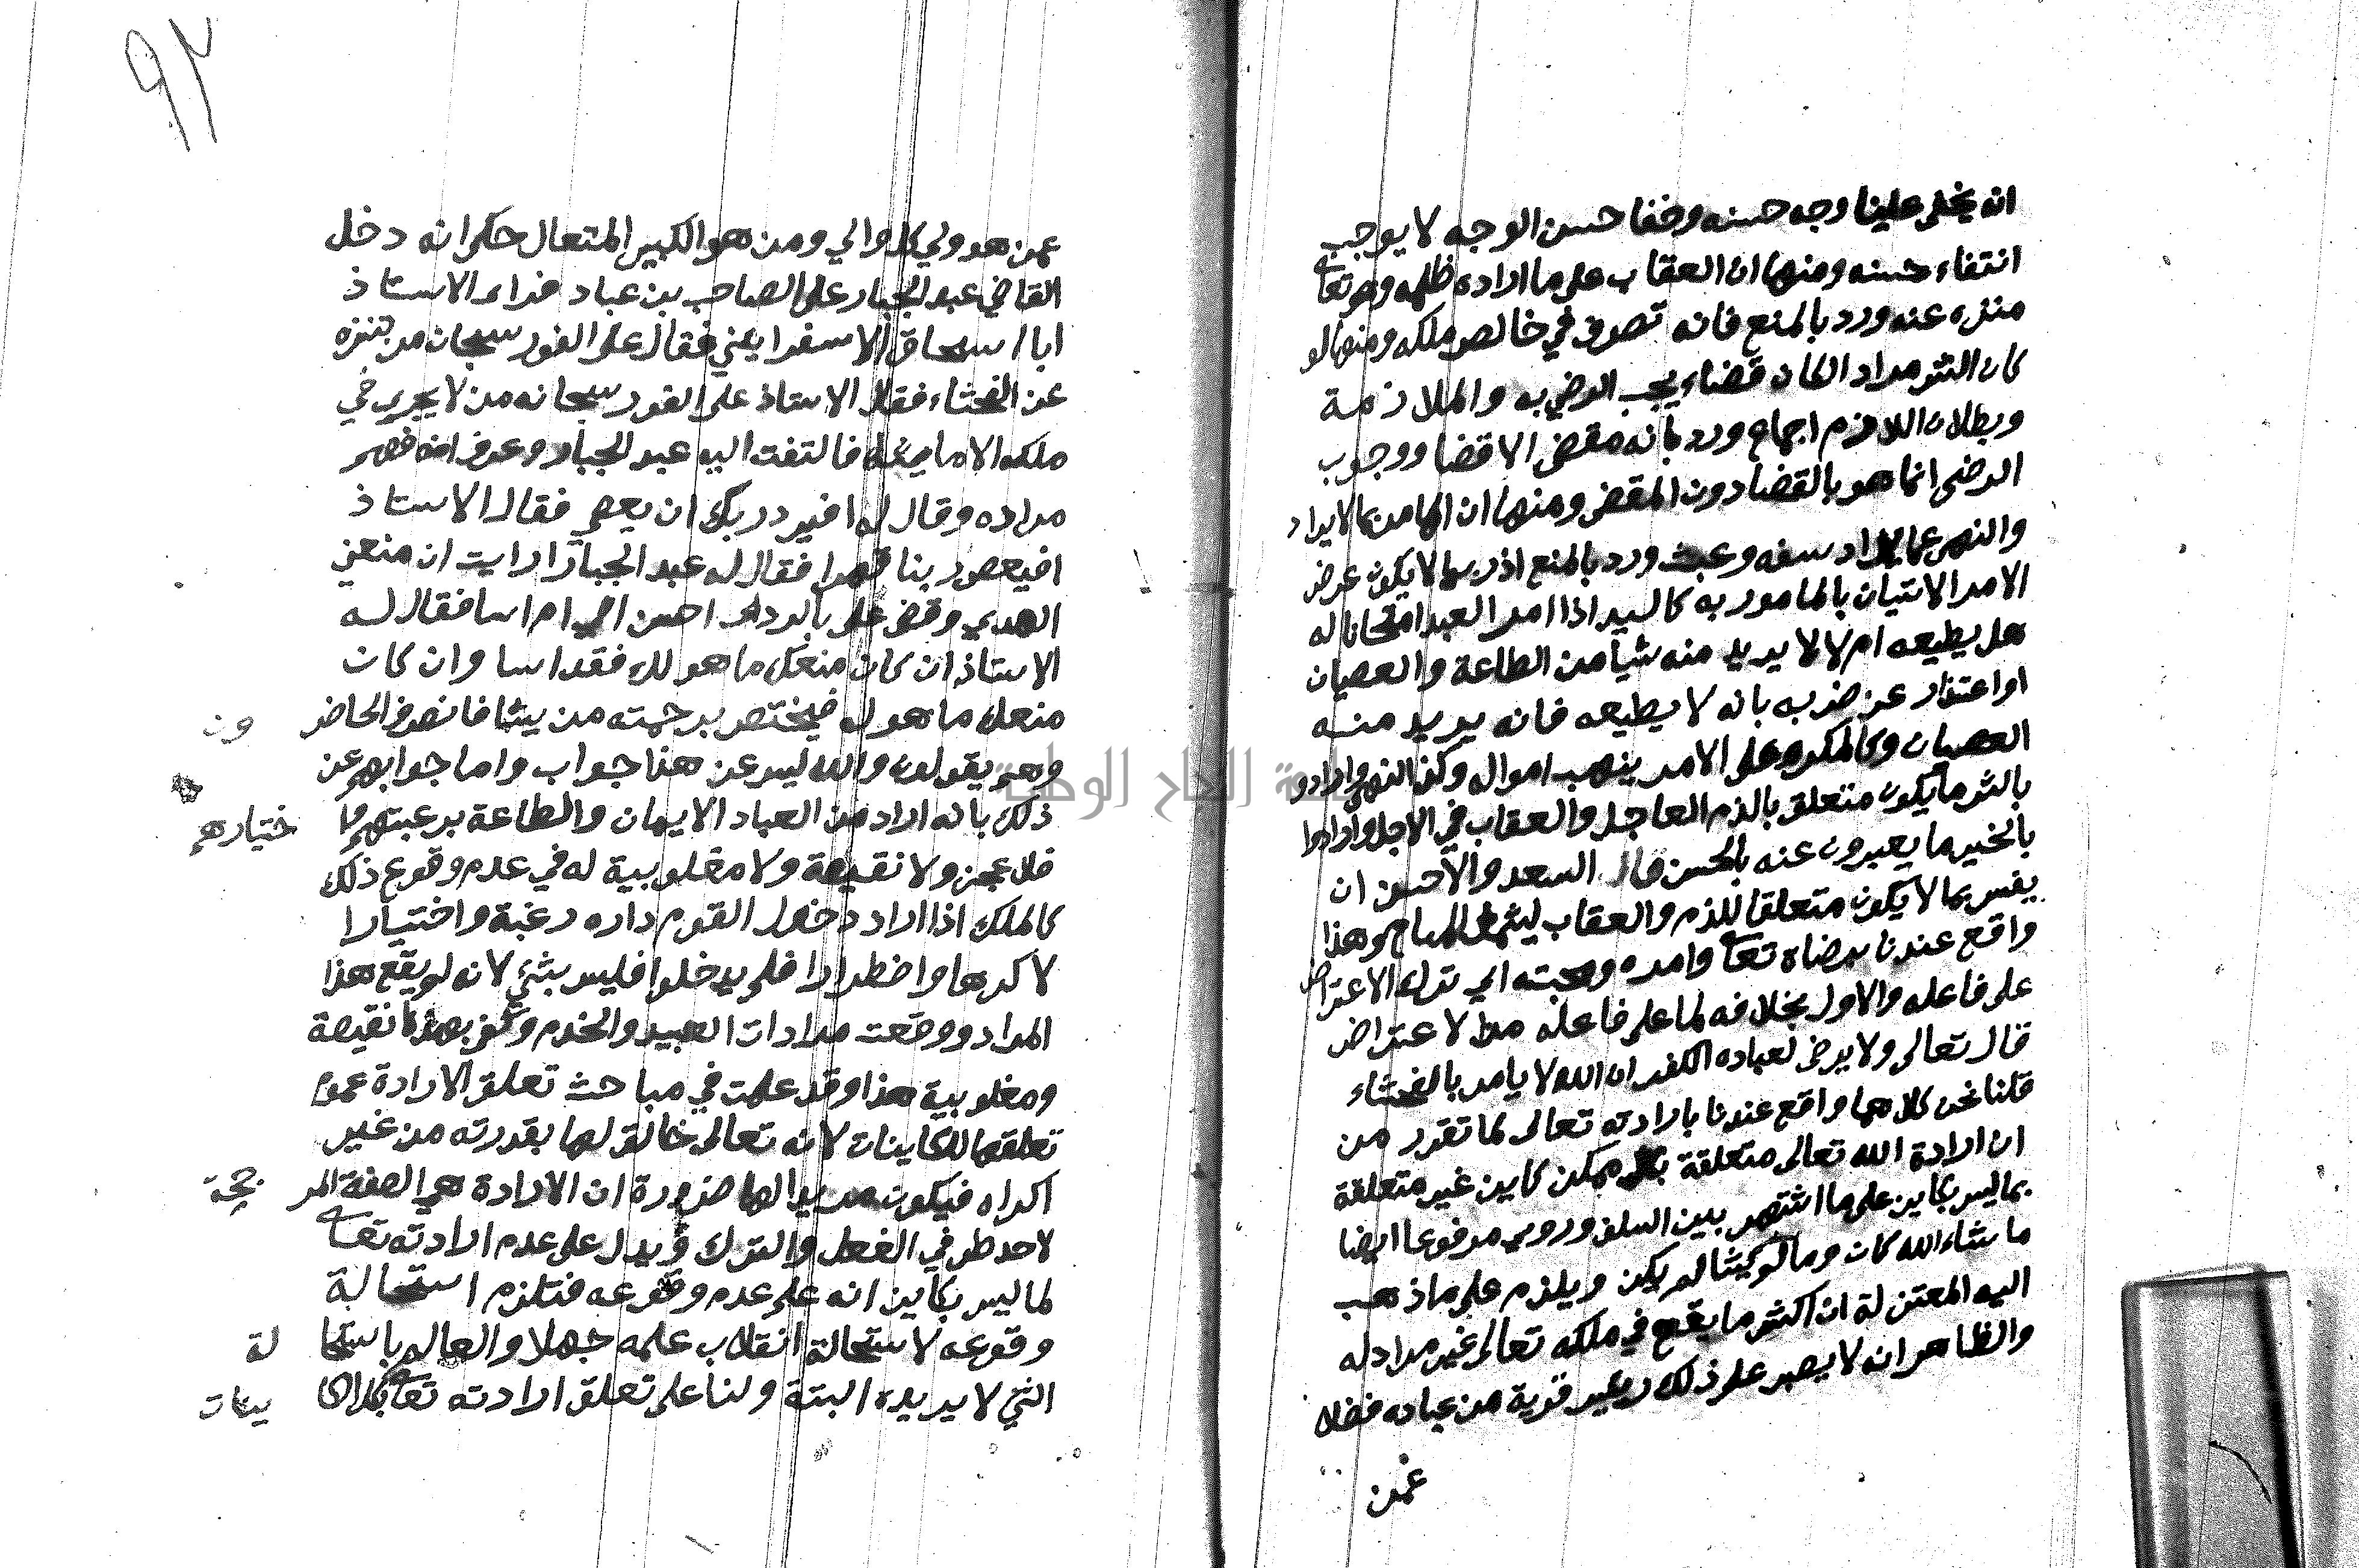 ان يخفى علينا وجه حسنه وخفا حسن الوجه لا يوجب
انتفاء حسنه ومنها ان العقاب على ما اراده ظلم وهو تعا
منزه عنه ورد بالمنع فانه تصرف في خالص ملكه ومنها لو
كان الشر مراد الكان قضاء يجب الرضي به والملازمة
وبطلان اللازم اجماع ورد بانه مقضى لا قضا ووجوب
الرضى انما هو بالقضا دون المقضى ومنها ان الامر بما لا يراد
والنهى عما يراد سفه وعبث ورد بالمنع اذ ربما لا يكون غرض
الامر الاتيان بالمامور به كالسيد اذا امر العبد امتحانا له
هل يطيعه ام لا لا يريد منه شيأ من الطاعة والعصيان
او اعتذار عن ضربه بانه لا يطيعه فانه يريد منه
العصيان وكالمكره على الامر بنهب امواله وكذا النهى وارادو
بالشر ما يكون متعلق بالذم العاجل والعقاب في الاجل وارادوا
بالخير ما يعبرون عنه بالحسن قال السعد والاحسن ان
يفسر بما لا يكون متعلقا للذم والعقاب ليشمل المباح وهذا
واقع عندنا برضاه تعا وامره ومحبته اي ترك الاعتراض
على فاعله والاول بخلافه لما على فاعله من الاعتراض
قال تعالى ولا يرضى لعباده الكفر ان الله لا يامر بالفحشاء
قلنا نحن كلاهما واقع عندنا بارادته تعالى لما تقرر من
ان ارادة الله تعالى متعلقة بكل ممكن كاين غير متعلقة
بما ليس بكاين على ما اشتهر بين السلف وروي مرفوعا ايضا
ما شاء الله كان وما لم يشا لم يكن ويلزم على ما ذهب
اليه المعتزلة ان اكثر ما يقع في ملكه تعالى غير مراد له
والظاهر انه لا يصبر على ذلك رييس قرية من عباده فضلا
عمن
٩٢
عمن هو ولي كل والي ومن هو الكبير المتعال حكى انه دخل
القاضي عبد الجبار على الصاحب بن عباد فراى الاستاذ
ابا اسحاق الاسفرايني فقال على الفور سبحان من تنزه
عن الفحشاء فقال الاستاذ على الفور سبحانه من لا يجري في
ملكه الا ما يشا فالتفت اليه عبد الجبار وعرف انه فهم
مراده وقال له افيريد ربك ان يعصى فقال الاستاذ
افيعصى ربنا قهرا فقال له عبد الجبار ارايت ان منعني
الهدى وقضى على بالردى احسن الي ام اسا فقال له
الاستاذ ان كان منعك ما هو لك فقد اسا وان كان
منعك ما هو له فيختص برحمته من يشا فانصرف الحاضرون
وهم يقولون والله ليس عن هذا جواب واما جوابهم عن
ذلك بانه اراد من العباد الايمان والطاعة برغبتهم واختيارهم
فلا عجز ولا نقيصة ولا مغلوبية له في عدم وقوع ذلك
كالملك اذا اراد دخول القوم داره رغبة واختيارا
لا كرها واضطرارا فلم يدخلوا فليس بشئ لانه لم يقع هذا
المراد ووقعت مرادات العبيد والخدم وكفى بهذا نقيصة
ومغلوبية هذا وقد علمت في مباحث تعلق الارادة عموم
تعلقها للكاينات لانه تعالى خالق لها بقدرته من غير
اكراه فيكون مريدا لها ضرورة ان الارادة هي الصفة المرجحة
لاحد طرفي الفعل والترك ويدل على عدم ارادته تعا
لما ليس بكاين انه علم عدم وقوعه فتلزم استحالة
وقوعه لاستحالة انقلاب علمه جهلا والعالم باستحالة
الشئ لا يريده البتة ولنا على تعلق ارادته تعا بكل الكاينات